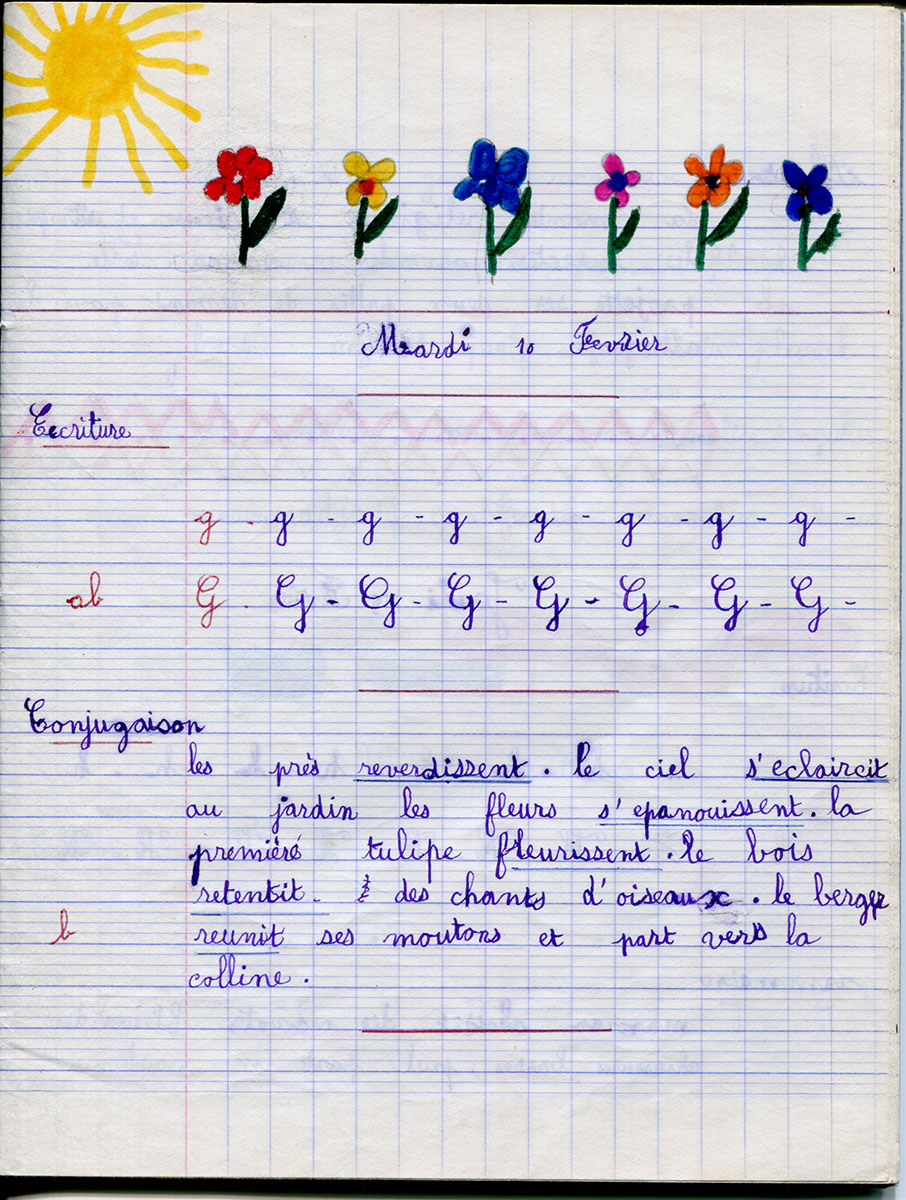 Mardi 10 Fevrier
Ecriture
g - g - g - g - g - g - g - g -
ab G - G - G - G - G - G - G - G -
Conjugaison
les près reverdissent. le ciel s'eclaircit
au jardin les fleurs s'epanouissent. la
premiéré tulipe fleurissent. le bois
retentit. des chants d'oiseaux. le berger
b reunit ses moutons et part vers la
colline.